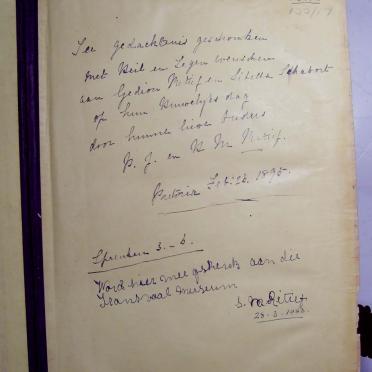 Ter gedachtenis geschonken
met Heil en Zegen wenschen
aan Gedion Retief en Sibella Schabort
op hun Huwelyks dag
door hunne lieve Ouders
P. J. en H M Retief.
Pretoria Feb: 26. 1895.
Spreuken 3. - 6.
Word hier mee geskenk aan die
Transvaal Museum
S. Retief
28-3-